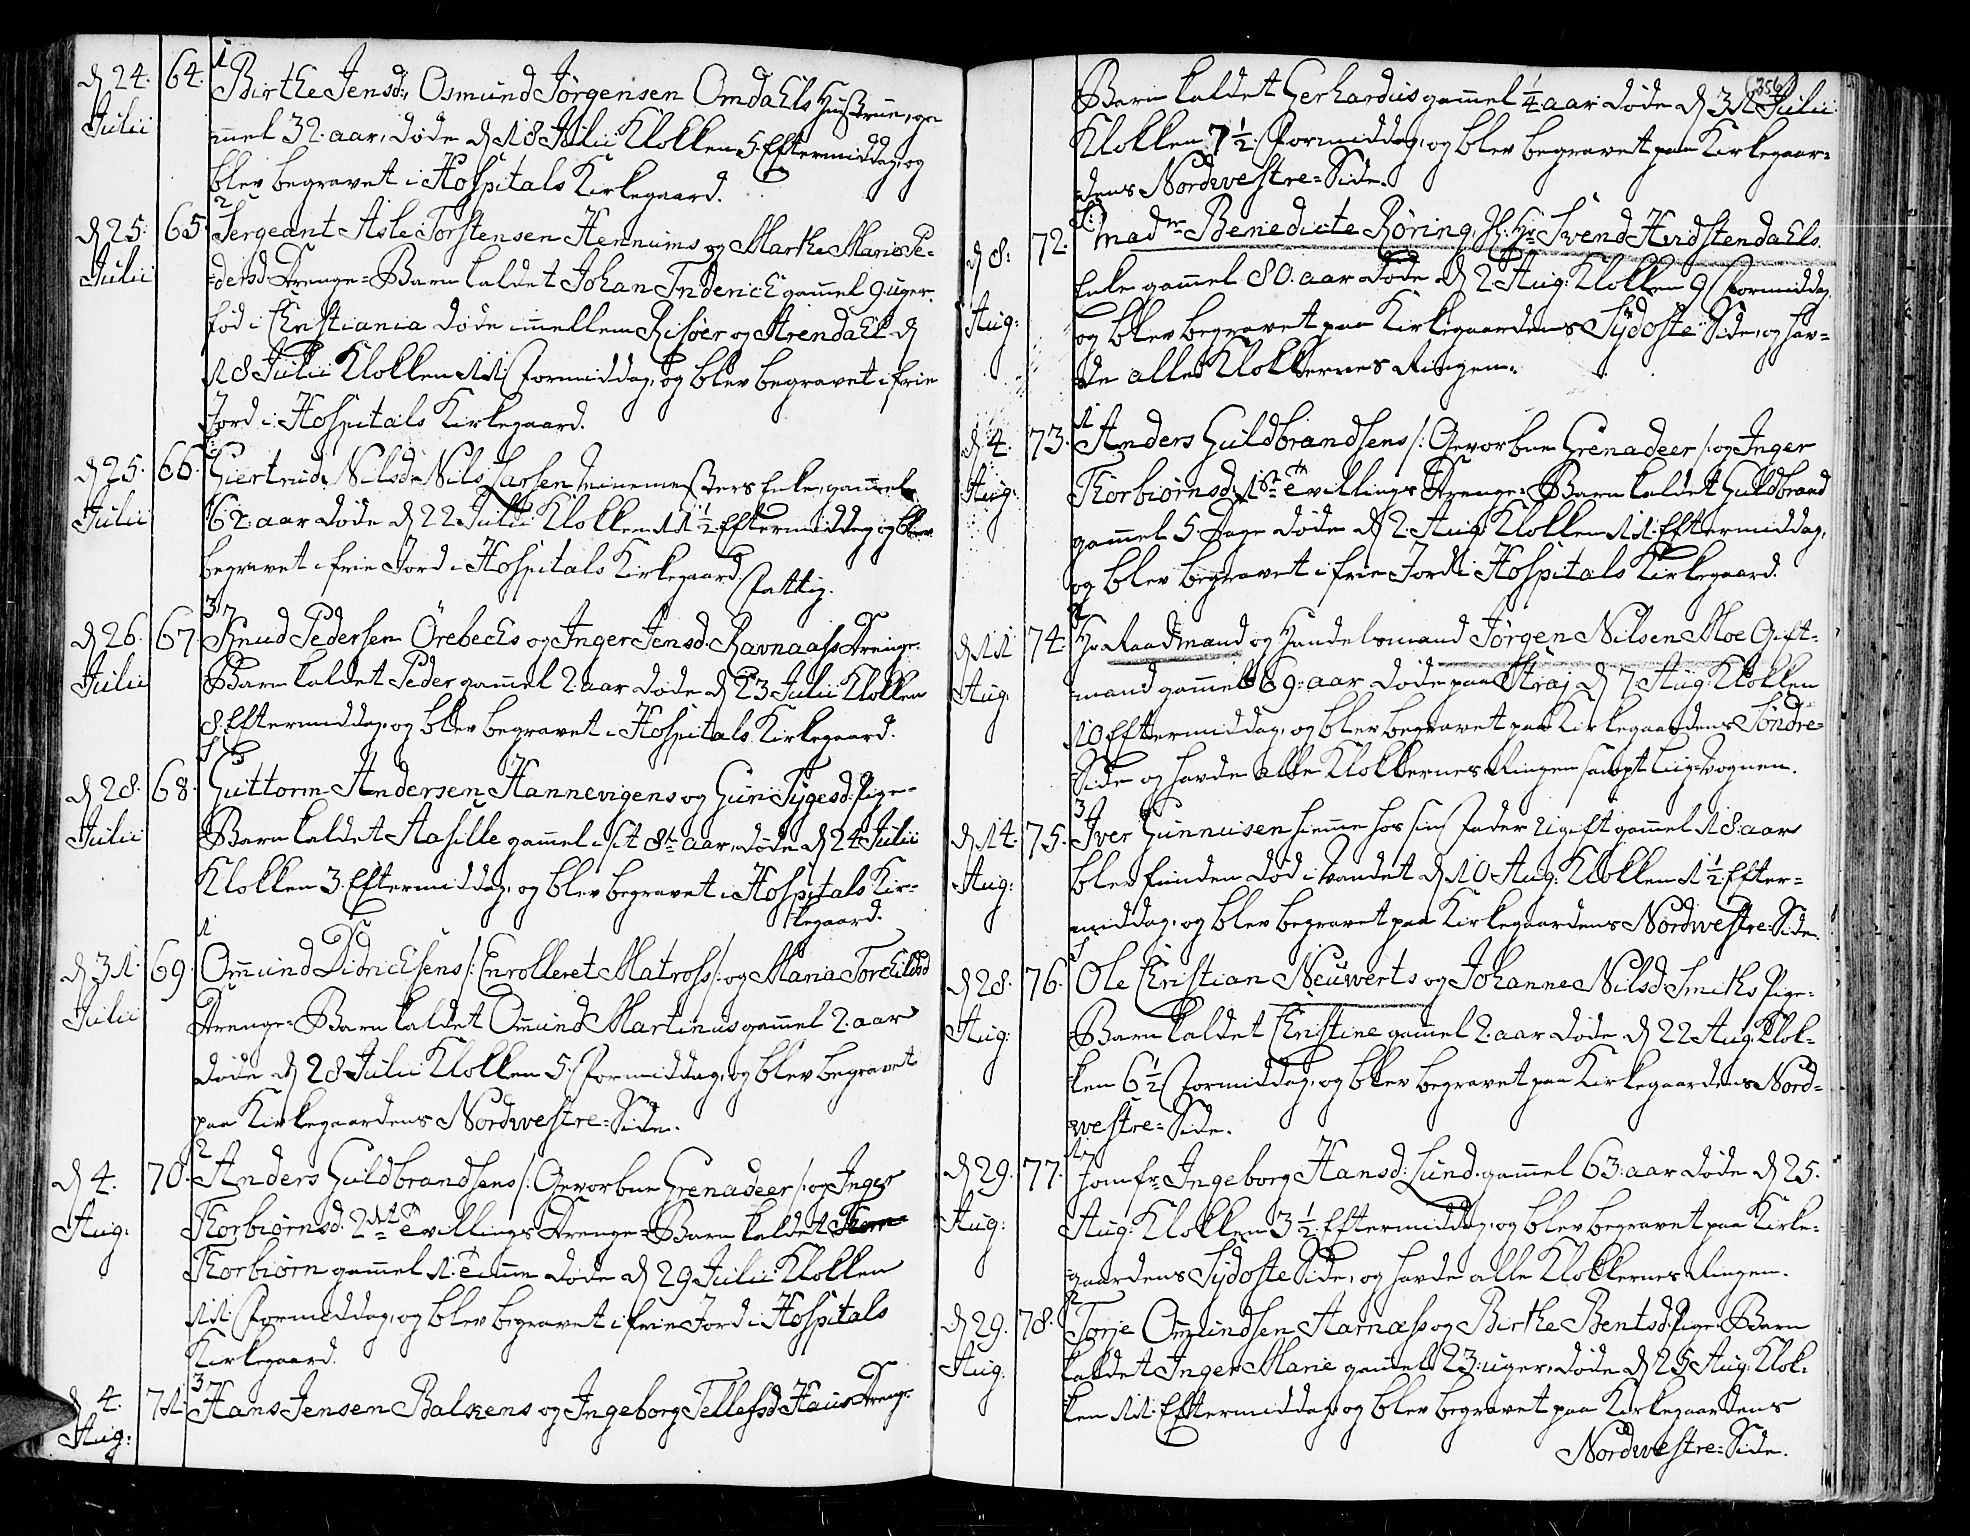 d 24. 64. 1
Birthe Jensd:, Osmund Jörgensen Omdahls Hustrue, ga
Julii
mmel 32. aar, døde d 18 Julii Klokken 5. Eftermiddag, og
blev begravet i Hospitals Kirkegaard.
d 25. 65. 2
Sergeant Asle Torstensen Hennums og Marthe Marie Pe-
Julii
-dersd Drenge-Barn kaldet Johan Friderich gammel 9. uger.
fød i Christiania døde immellem Risøer og Arendahl d
18 Julii Klokken 11 Formiddag, og blev begravet i frie
Jord i Hospitals Kirkegaard.
d 25. 66.
Giertrud Nilsd. Nils Larsen Enke, gammel
Julii
62. aar døde d 22 Julii Klokken 11 1/2 Eftermiddag og blev
begravet i frie Jord i Hospitals Kirkegaard Fattig.
d 26. 67. 3
Knud Pedersen Örebechs og Inger Jensd. Ravnaass Drenge-
Julii
Barn kaldet Peder gammel 2. aar døde d 23 Julii Klokken
8. Eftermiddag, og blev begravet i Hospitals Kirkegaard.
d 28. 68.
Guttorm Andersen Hannevigens og Guri Tygesd. Pige-
Julii
Barn kaldet Aasille gammel i sit 8de aar, døde d 24 Julii
Klokken 3. Eftermiddag, og blev begravet i Hospitals Kir-
kegaard.
d 31. 69. 1
Ommund Didrichsens /: Enrolleret Matross :/ og Maria Torchildsd
Julii
Drenge-Barn kaldet Omund Martinus gammel 2. aar
døde d 28 Julii Klokken 5. Formiddag, og blev begravet
paa Kirkegaardens Nordwestre-Side.
d 4. 70. 2
Anders Guldbrandsens /: Gevorbne Grenadeer :/ og Inger
Aug:
Torbiørnsd. 2det Tvillings Drenge-Barn kaldet
Torbiørn gammel 1. Time døde d 29 Julii Klokken
11. Formiddag, og blev begravet i frie Jord i Hospitals
Kirkegaard.
d 4. 71. 3
Hans Jensen Balchens og Ingeborg Tellefsd Haus Drenge-
Aug:
356
Barn kaldet Gerhardus gammel 1/4 aar døde d 31 Julii
Klokken 7 1/2 Formiddag, og blev begravet paa Kirkegaar-
dens Nordwestre-Side.
d 8. 72.
Madme Benedicte Röring, Sl. Hr Svend Hirdstendahls
Aug:
Enke gammel 80. aar døde d 2 Aug: Klokken 9 Formiddag
og blev begravet paa Kirkegaardens Sydoste Side, og hav-
de alle Klokkernes Ringen.
d 4. 73. 1
Anders Guldbrandsens /: Gevorbne Grenadeer :/ og Inger
Aug:
Torbiørnsd. 1ste Tvillings Drenge-Barn kaldet Guldbrand
gammel 5 Dage døde d 2. Aug: Klokken 11. Eftermiddag,
og blev begravet i frie Jord i Hospitals Kirkegaard.
d 11 74. 2
Hr Raadmand og Handelsmand Jørgen Nilsen Moe Gift-
Aug:
mand gammel 69. aar døde paa Straj d 7 Aug: Klokken
10 Eftermiddag, og blev begravet paa Kirkegaardens Söndre-
Side og havde alle Klokkernes Ringen sampt Liig-Vognen.
d 14. 75. 3
Iver Gunnusen hiemme hos sin Fader ugift gammel 18. aar
Aug:
blev funden død i Vandet d 10 Aug: Klokken 1 1/2 Efter-
middag, og blev begravet paa Kirkegaardens Nordwestre-Side.
d 28. 76.
Ole Christian Neuwerts og Johanne Nilsd. Smiths Pige-
Aug:
Barn kaldet Christine gammel 2. aar døde d 22 Aug: Klok-
ken 6 1/2 Formiddag, og blev begravet paa Kirkegaardens Nord-
westre-Side.
d 29. 77. 1
Jomfr. Ingeborg Hansd: Lund. gammel 63. aar døde d 25.
Aug:
Aug: Klokken 3 1/2 Eftermiddag, og blev begravet paa Kirke-
gaardens Sydoste Side, og havde alle Klokkernes Ringen.
d 29. 78. 2
Torje Omundsen Harnæss og Birthe Bentsd. Pige-Barn
Aug.
kaldet Inger Marie gammel 23. uger, døde d 25 Aug: Klok-
ken 11. Eftermiddag, og blev begravet paa Kirkegaardens
Nordwestre-Side.